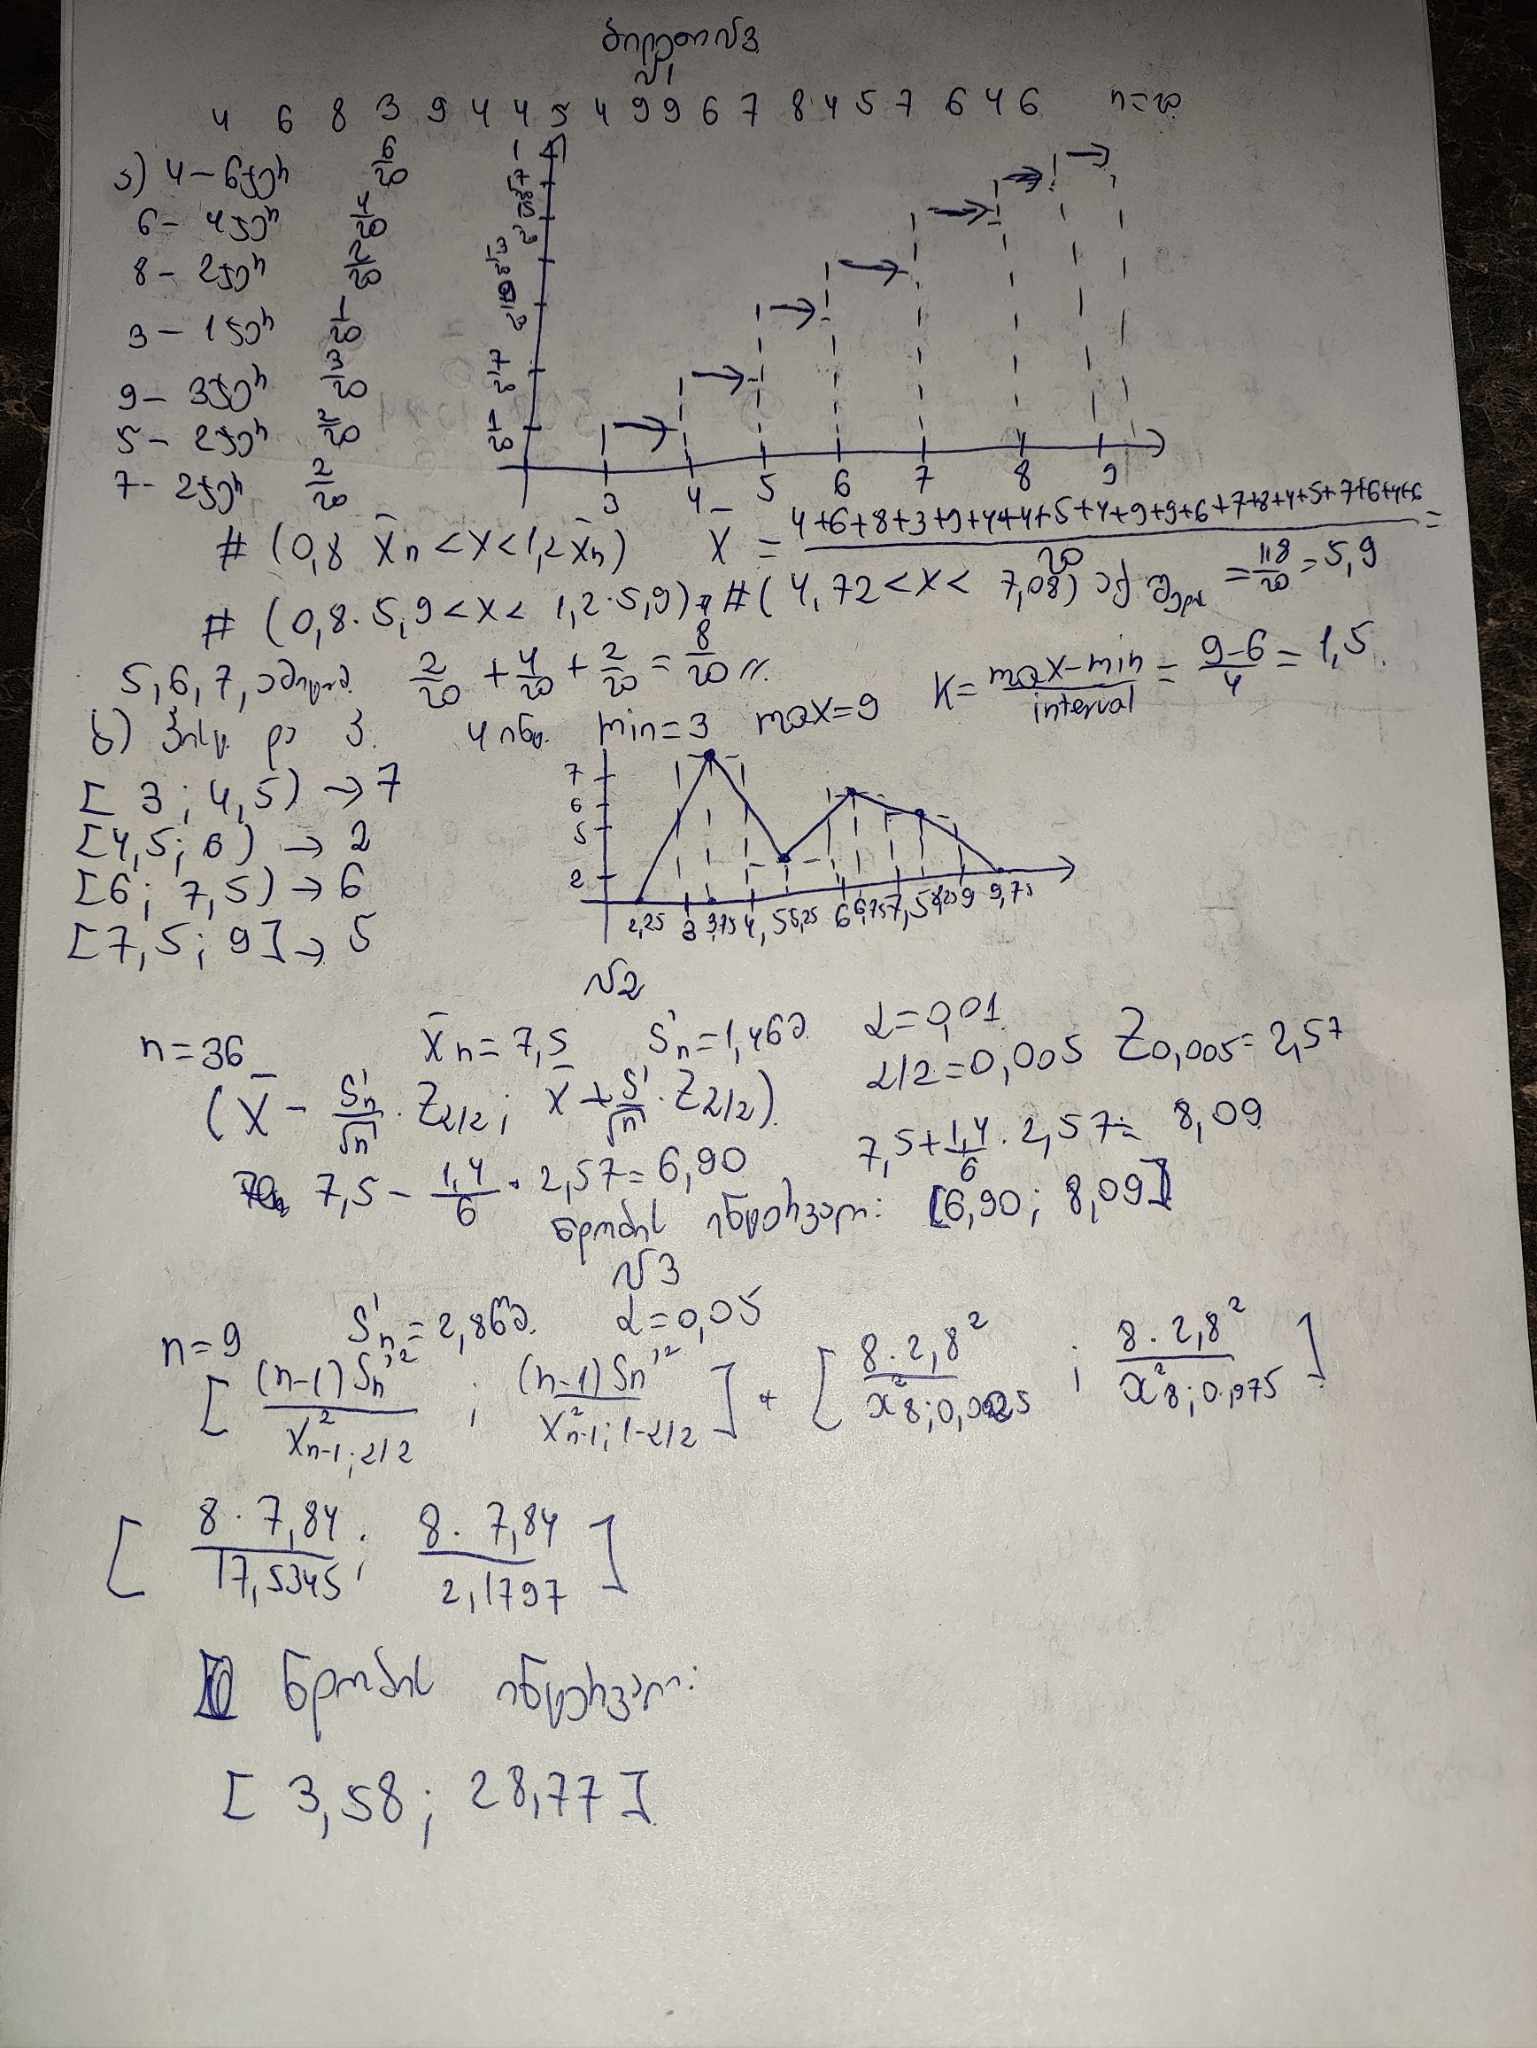 ბილეთი №3
№1
4 6 8 3 9 4 4 5 4 9 9 6 7 8 4 5 7 6 4 6 n=20
ა) 4 – 6ჯერ 6/20
6 – 4ჯერ 4/20
8 – 2ჯერ 2/20
3 – 1ჯერ 1/20
9 – 3ჯერ 3/20
5 – 2ჯერ 2/20
7 – 2ჯერ 2/20
1
7/20
1/20
3 4 5 6 7 8 9
# (0,8 x̄n < x < 1,2 x̄n) x̄ = (4+6+8+3+9+4+4+5+4+9+9+6+7+8+4+5+7+6+4+6)/20 =
= 118/20 = 5,9
# (0,8·5,9 < x < 1,2·5,9) = # (4,72 < x < 7,08) აქ
5, 6, 7, 2/20 + 4/20 + 2/20 = 8/20 //.
ბ) და 3. 4 ინტ. min=3 max=9 K = (max-min)/interval = (9-6)/4 = 1,5.
[ 3 ; 4,5) → 7
[4,5; 6) → 2
[6; 7,5) → 6
[7,5; 9] → 5
7
6
5
2
2,25 3 3,75 4,5 5,25 6 6,75 7,5 8,25 9 9,75
№2
n=36 x̄n = 7,5 S'n = 1,4 α=0,01
α/2=0,005 Z0,005 = 2,57
(x̄ - S'n/√n · Zα/2; x̄ + S'n/√n · Zα/2)
7,5 - 1,4/6 · 2,57 = 6,90 7,5 + 1,4/6 · 2,57 = 8,09
ნდობის ინტერვალი: [6,90; 8,09]
№3
n=9 S'n = 2,8 α=0,05
[ (n-1)Sn'²/X²n-1;α/2 ; (n-1)Sn'²/X²n-1;1-α/2 ] [ 8·2,8²/x²8;0,025 ; 8·2,8²/x²8;0,975 ]
[ 8·7,84/17,5345 ; 8·7,84/2,1797 ]
ნდობის ინტერვალი:
[ 3,58; 28,77 ]